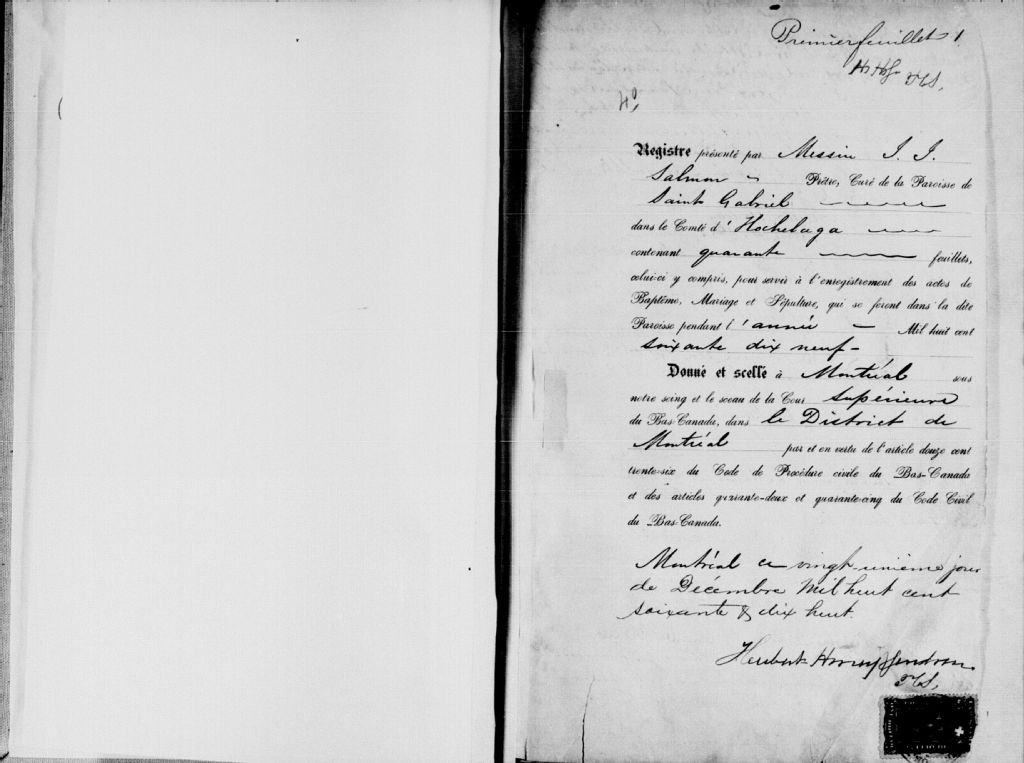 Premier feuillet 1
4°
Registre présenté par Messire J. J.
Salmon Prêtre, Curé de la Paroisse de
Saint Gabriel
dans le Comté d'Hochelaga
contenant quarante feuillets,
celui-ci y compris, pour servir à l'enregistrement des actes de
Baptême, Mariage et Sépulture, qui se feront dans la dite
Paroisse pendant l'année Mil huit cent
soixante dix neuf-
Donné et scellé à Montréal sous
notre seing et le sceau de la Cour Supérieure
du Bas-Canada, dans le District de
Montréal par et en vertu de l'article douze cent
trente-six du Code de Procédure civile du Bas-Canada
et des articles quarante-deux et quarante-cinq du Code Civil
du Bas-Canada.
Montréal ce vingt-unième jour
de Décembre Mil huit cent
soixante & dix huit.